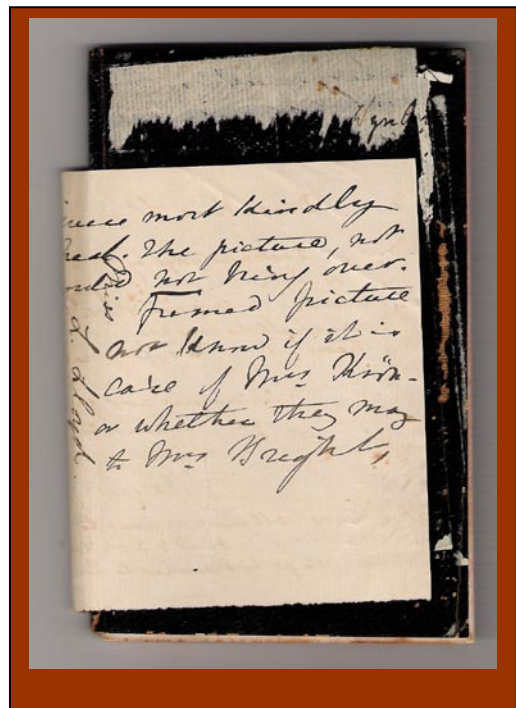 most kindly
The picture, not
not being over.
Framed picture
not know if it is
case of Mrs Kön-
or whether they may
to Mrs Bright,
Miss L. Lloyd.